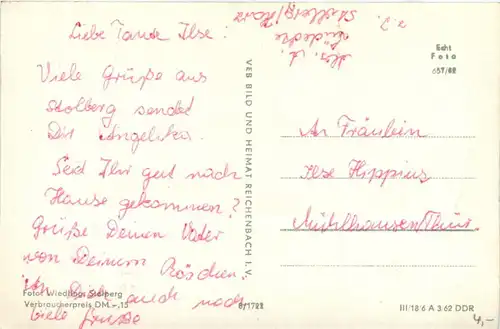 Liebe Tante Ilse:
Viele Grüße aus
Stolberg sendet
Dir Angelika.
Seid Ihr gut nach
Hause gekommen?
Grüße Deinen Vater
von Deinem Röschen.
Dir auch noch
viele Grüße
Foto: Wiedling, Stolberg
Verbraucherpreis DM -,15
8/1722
VEB BILD UND HEIMAT REICHENBACH I. V.
z. Z.
Stolberg/Harz
Echt
Foto
657/62
An Fräulein
Ilse Hippius
Mühlhausen/Thür.
III/18/6 A 3/62 DDR
4,-